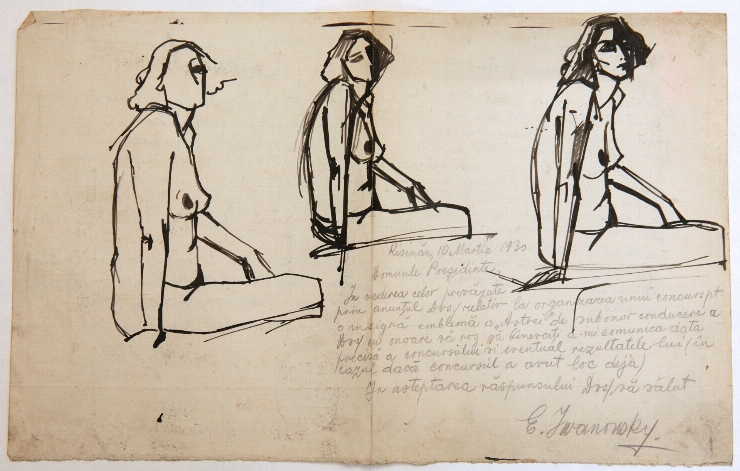 Răsinări, 10 Martie 1930
Domnule Președinte,
În vederea celor prevăzute
prin anunțul Dvs, relativ la organizarea unui concurs pt
o insigna-emblemă a „Astrei” de sub onor conducere a
Dvs, cu onoare vă rog să binevoiți a-mi comunica data
precisă a concursului și eventual rezultatele lui (în
cazul dacă concursul a avut loc dejà)
În așteptarea răspunsului Dvs, vă salut
E. Iwanowsky.